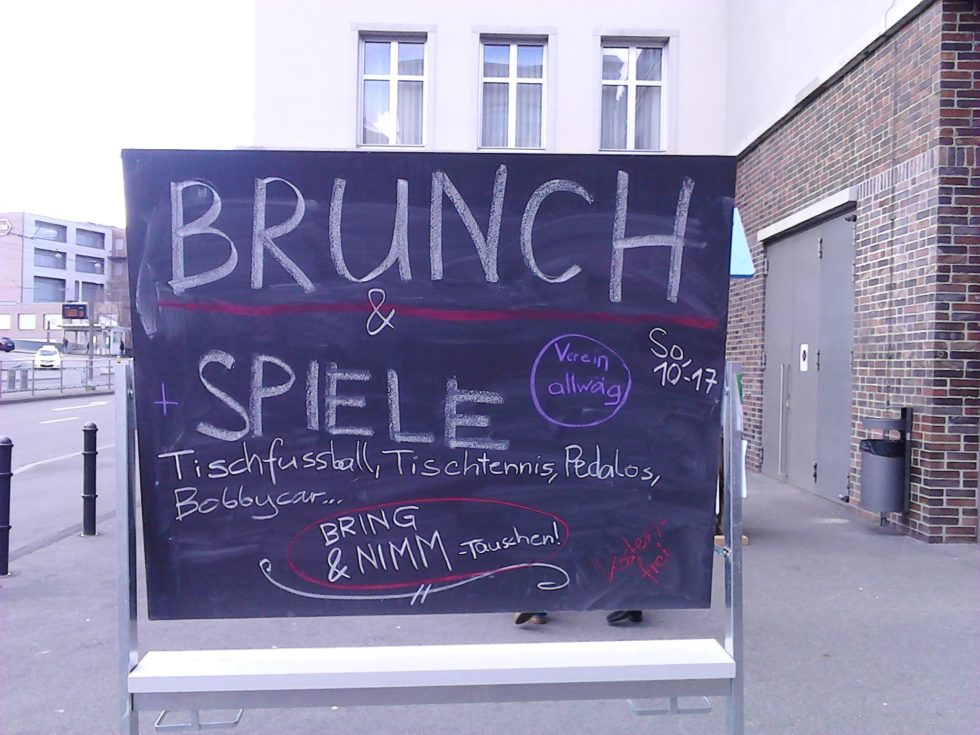 BRUNCH
&
+ SPIELE
Verein
allwäg
So,
10-17
Tischfussball, Tischtennis, Pedalos,
Bobbycar...
BRING
& NIMM -Tauschen!
kosten-
frei